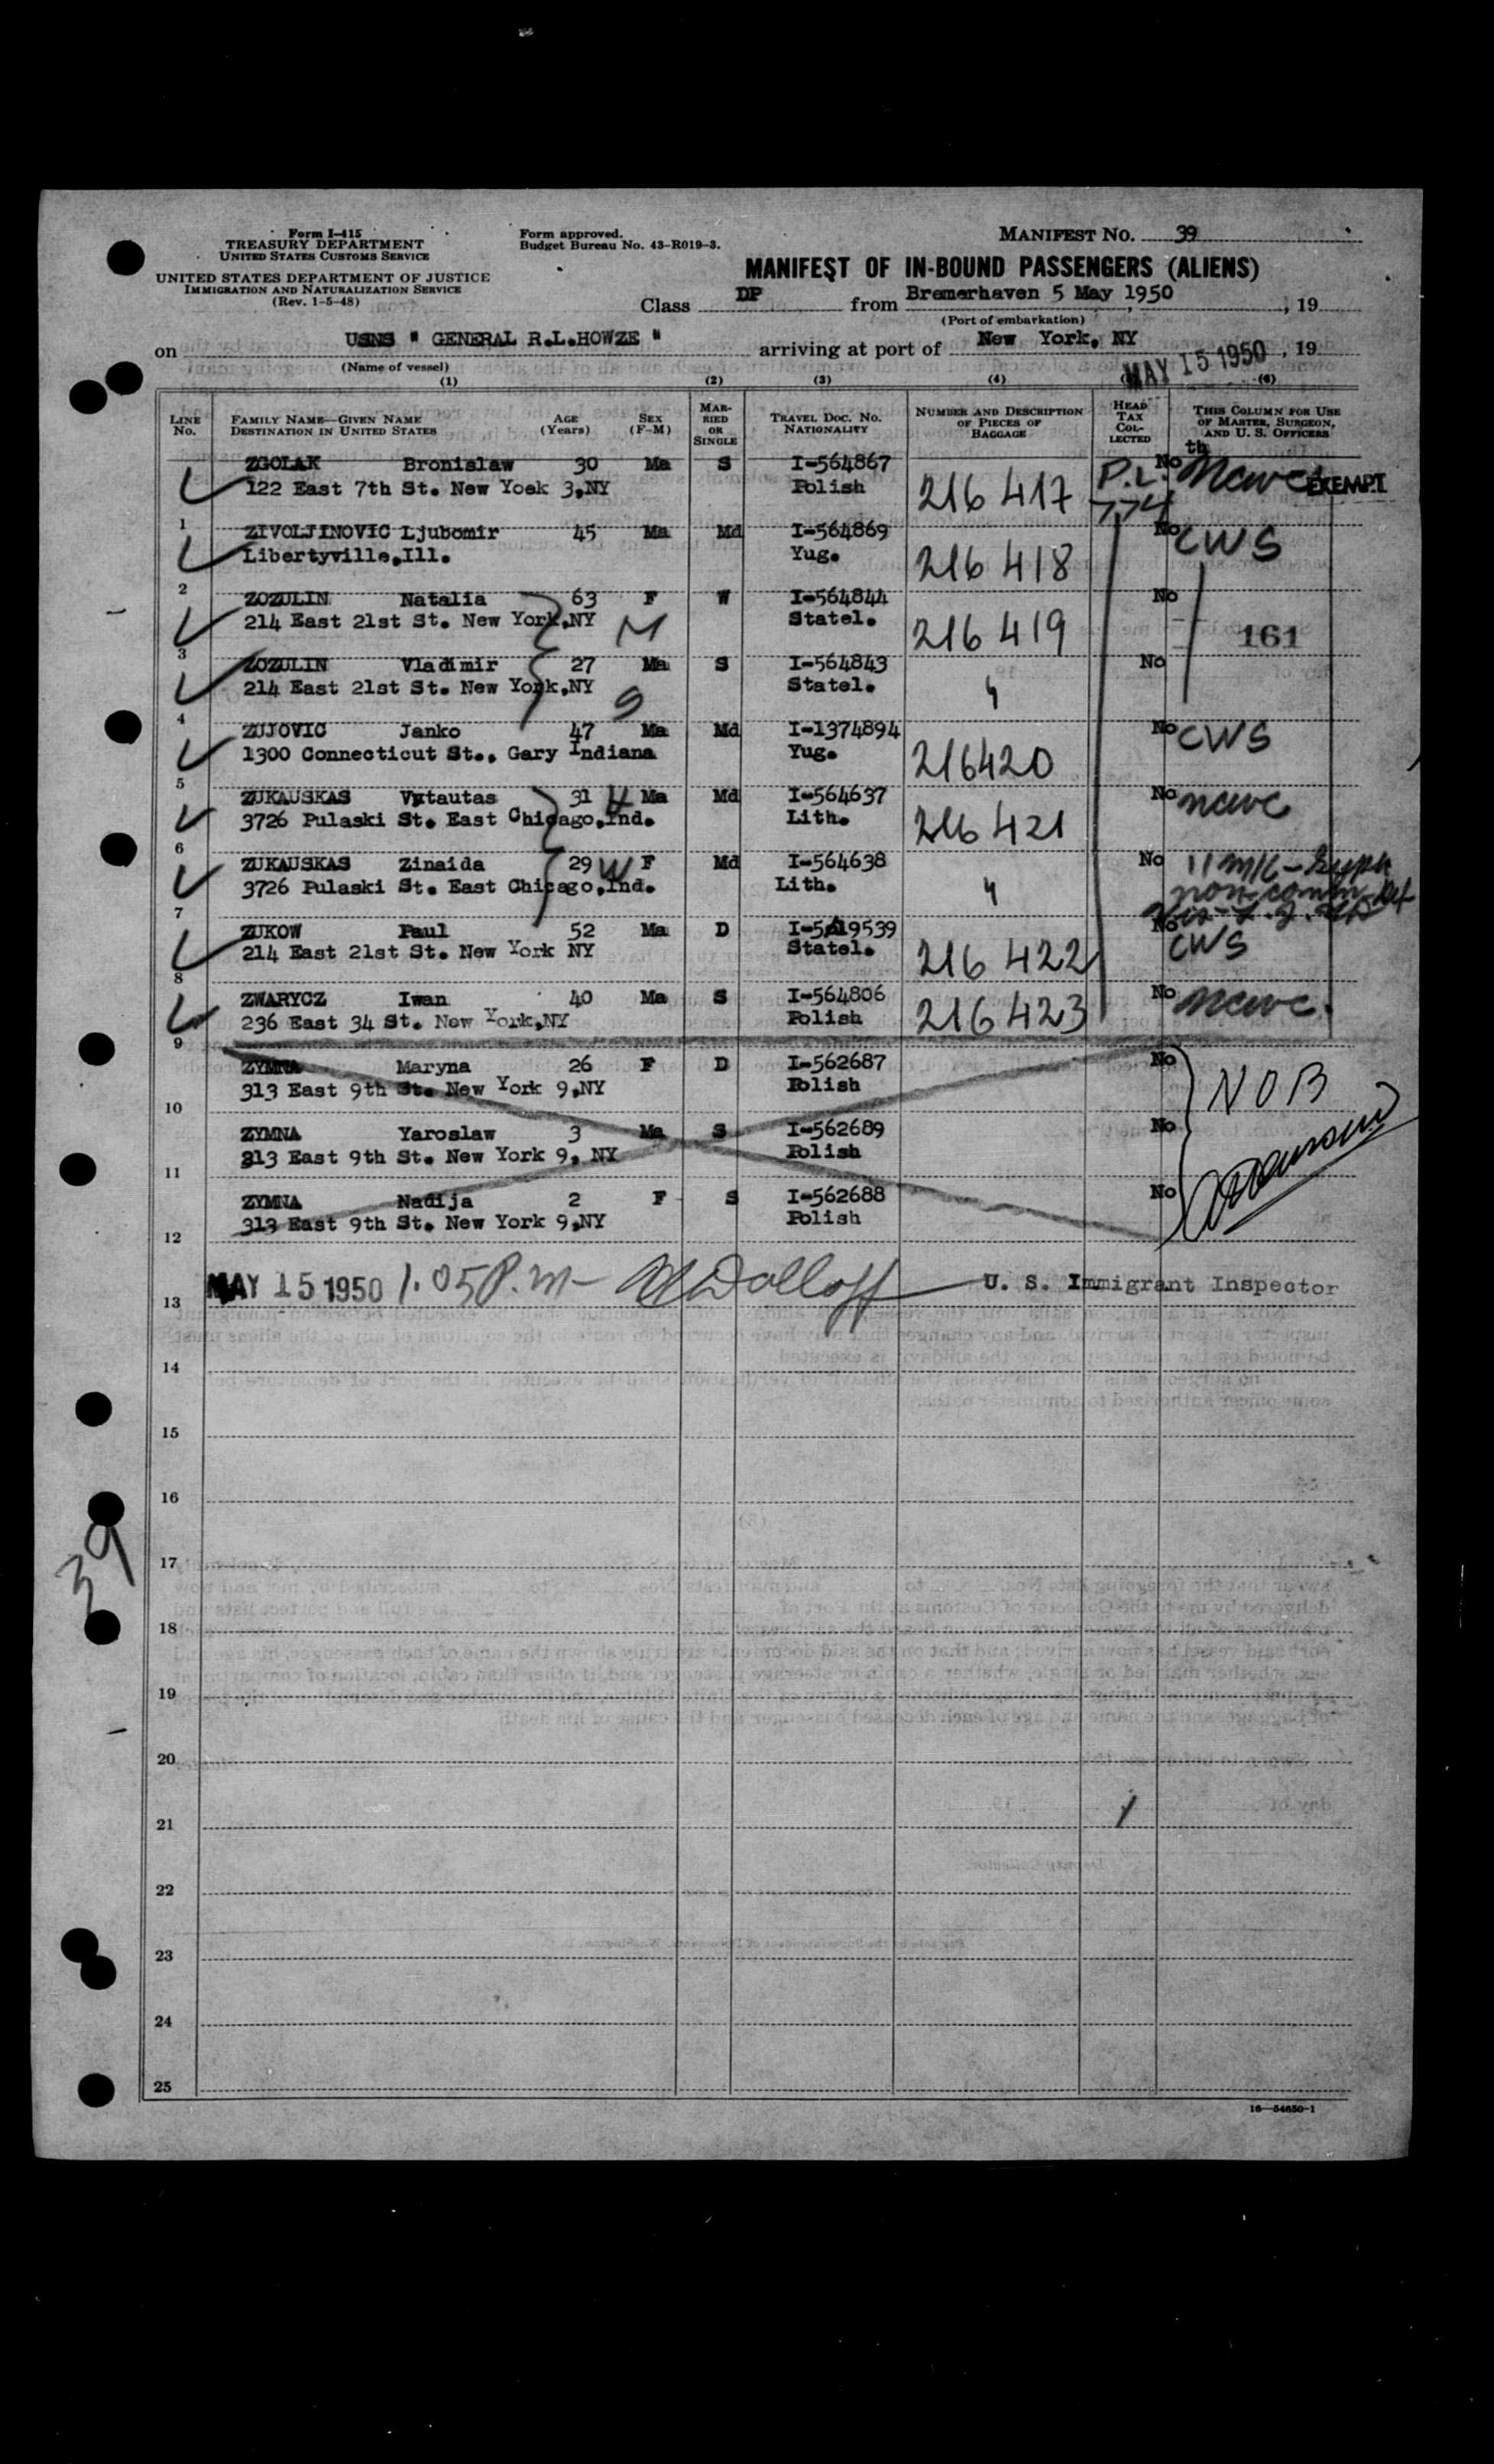 Form I-415
TREASURY DEPARTMENT
UNITED STATES CUSTOMS SERVICE
UNITED STATES DEPARTMENT OF JUSTICE
IMMIGRATION AND NATURALIZATION SERVICE
(Rev. 1-5-48)
Form approved.
Budget Bureau No. 43-R019-3.
MANIFEST No. 39
MANIFEST OF IN-BOUND PASSENGERS (ALIENS)
Class DP from Bremerhaven 5 May 1950, 19
(Port of embarkation)
on USNS " GENERAL R.L.HOWZE " arriving at port of New York, NY MAY 15 1950, 19
(Name of vessel)
(1) (2) (3) (4) (6)
LINE No. FAMILY NAME—GIVEN NAME DESTINATION IN UNITED STATES AGE (Years) SEX (F-M) MARRIED OR SINGLE TRAVEL DOC. NO. NATIONALITY NUMBER AND DESCRIPTION OF PIECES OF BAGGAGE HEAD TAX COLLECTED THIS COLUMN FOR USE OF MASTER, SURGEON, AND U. S. OFFICERS
th
ZGOLAK Bronislaw 30 Ma S I-564867 P.L. No ncwc EXEMPT
122 East 7th St. New Yoek 3,NY Polish 216 417 774
1
ZIVOLJINOVIC Ljubomir 45 Ma Md I-564869 No CWS
Libertyville,Ill. Yug. 216 418
2
ZOZULIN Natalia 63 F W I-564844 No
214 East 21st St. New York,NY M Statel. 216 419 161
3
ZOZULIN Vladimir 27 Ma S I-564843 No
214 East 21st St. New York,NY S Statel. "
4
ZUJOVIC Janko 47 Ma Md I-1374894 No CWS
1300 Connecticut St., Gary Indiana Yug. 216420
5
ZUKAUSKAS Vytautas 31 H Ma Md I-564637 No ncwc
3726 Pulaski St. East Chicago,Ind. Lith. 216 421
6
ZUKAUSKAS Zinaida 29 W F Md I-564638 No
3726 Pulaski St. East Chicago,Ind. Lith. "
7
ZUKOW Paul 52 Ma D I-519539 No CWS
214 East 21st St. New York NY Statel. 216 422
8
ZWARYCZ Iwan 40 Ma S I-564806 No ncwc.
236 East 34 St. New York,NY Polish 216 423
9
ZYMNA Maryna 26 F D I-562687 No
313 East 9th St. New York 9,NY Polish NOB
10
ZYMNA Yaroslaw 3 Ma S I-562689 No
313 East 9th St. New York 9, NY Polish
11
ZYMNA Nadija 2 F S I-562688 No
313 East 9th St. New York 9,NY Polish
12
MAY 15 1950 1.05 P.m- Dolloff U. S. Immigrant Inspector
13
14
15
16
39
17
18
19
20
21
22
23
24
25
16—54650-1